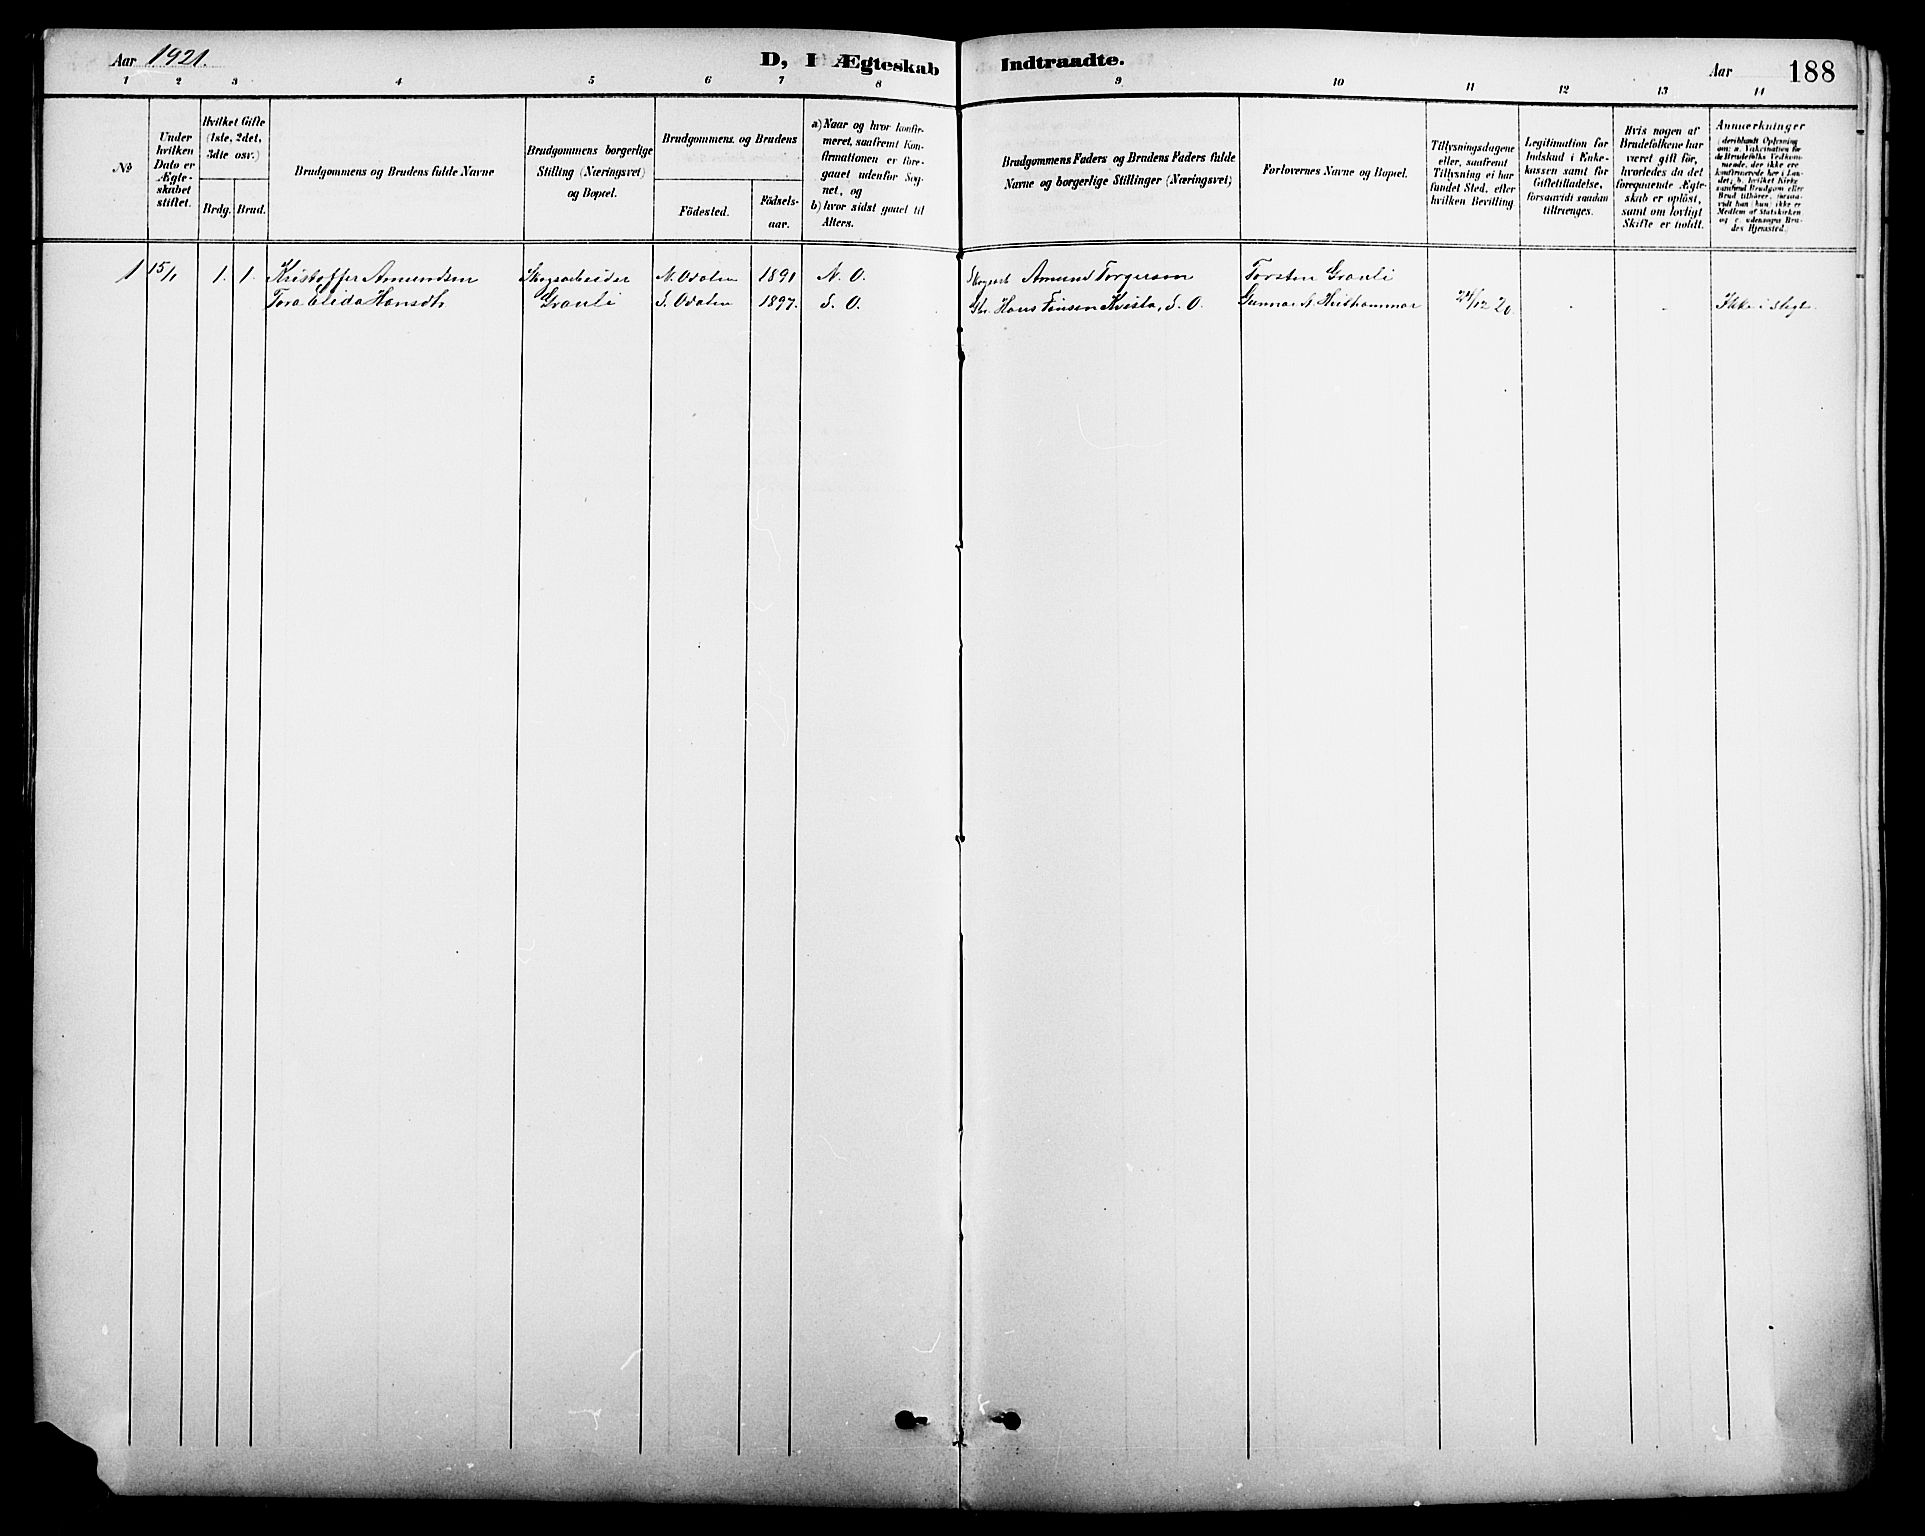 Aar 1921.
D, I Ægteskab Indtraadte.
Aar
188
1 2 3 4 5 6 7 8 9 10 11 12 13 14
No
Under hvilken Dato er Ægte-skabet stiftet.
Hvilket Gifte (1ste, 2det, 3die osv.)
Brdg. Brud.
Brudgommens og Brudens fulde Navne
Brudgommens borgerlige Stilling (Næringsvei) og Bopæl.
Brudgommens og Brudens
Födested.
Födsels-aar.
a) Naar og hvor konfir-meret, saafremt Kon-firmationen er fore-gaaet udenfor Sog-net, og
b) hvor sidst gaaet til Alters.
Brudgommens Faders og Brudens Faders fulde Navne og borgerlige Stillinger (Næringsvei)
Forlovernes Navne og Bopæl.
Tillysningsdagene eller, saafremt Tillysning ei har fundet Sted, efter hvilken Bevilling
Legitimation for Indskud i Enke-kassen samt for Giftetilladelse, forsaavidt saadan tiltrænges.
Hvis nogen af Brudefolkene har været gift för, hvorledes da det foregaaende Ægte-skab er oplöst, samt om lovligt Skifte er holdt.
Anmerkninger (deriblandt Oplysning om: a. Vakcination for de Brudefolks Vedkom-mende, der ikke ere konfirmerede her i Lan-det; b. hvilket Kirke-samfund Brudgom eller Brud tilhörer, forsaa-vidt han (hun) ikke er Medlem af Statskirken og c. udensogns Bru-des Hjemsted.)
1 15/1 1. 1. Kristoffer Amundsen Skogsarbeider N. Odalen 1891 N. O. Amund Torgersen Torsten Granli
Tora Elida Hansdtr Granli S. Odalen 1897. S. O. Hans Finsen Kvista, S. O. Gunnar 24/12 20. - - Ikke i slegt.